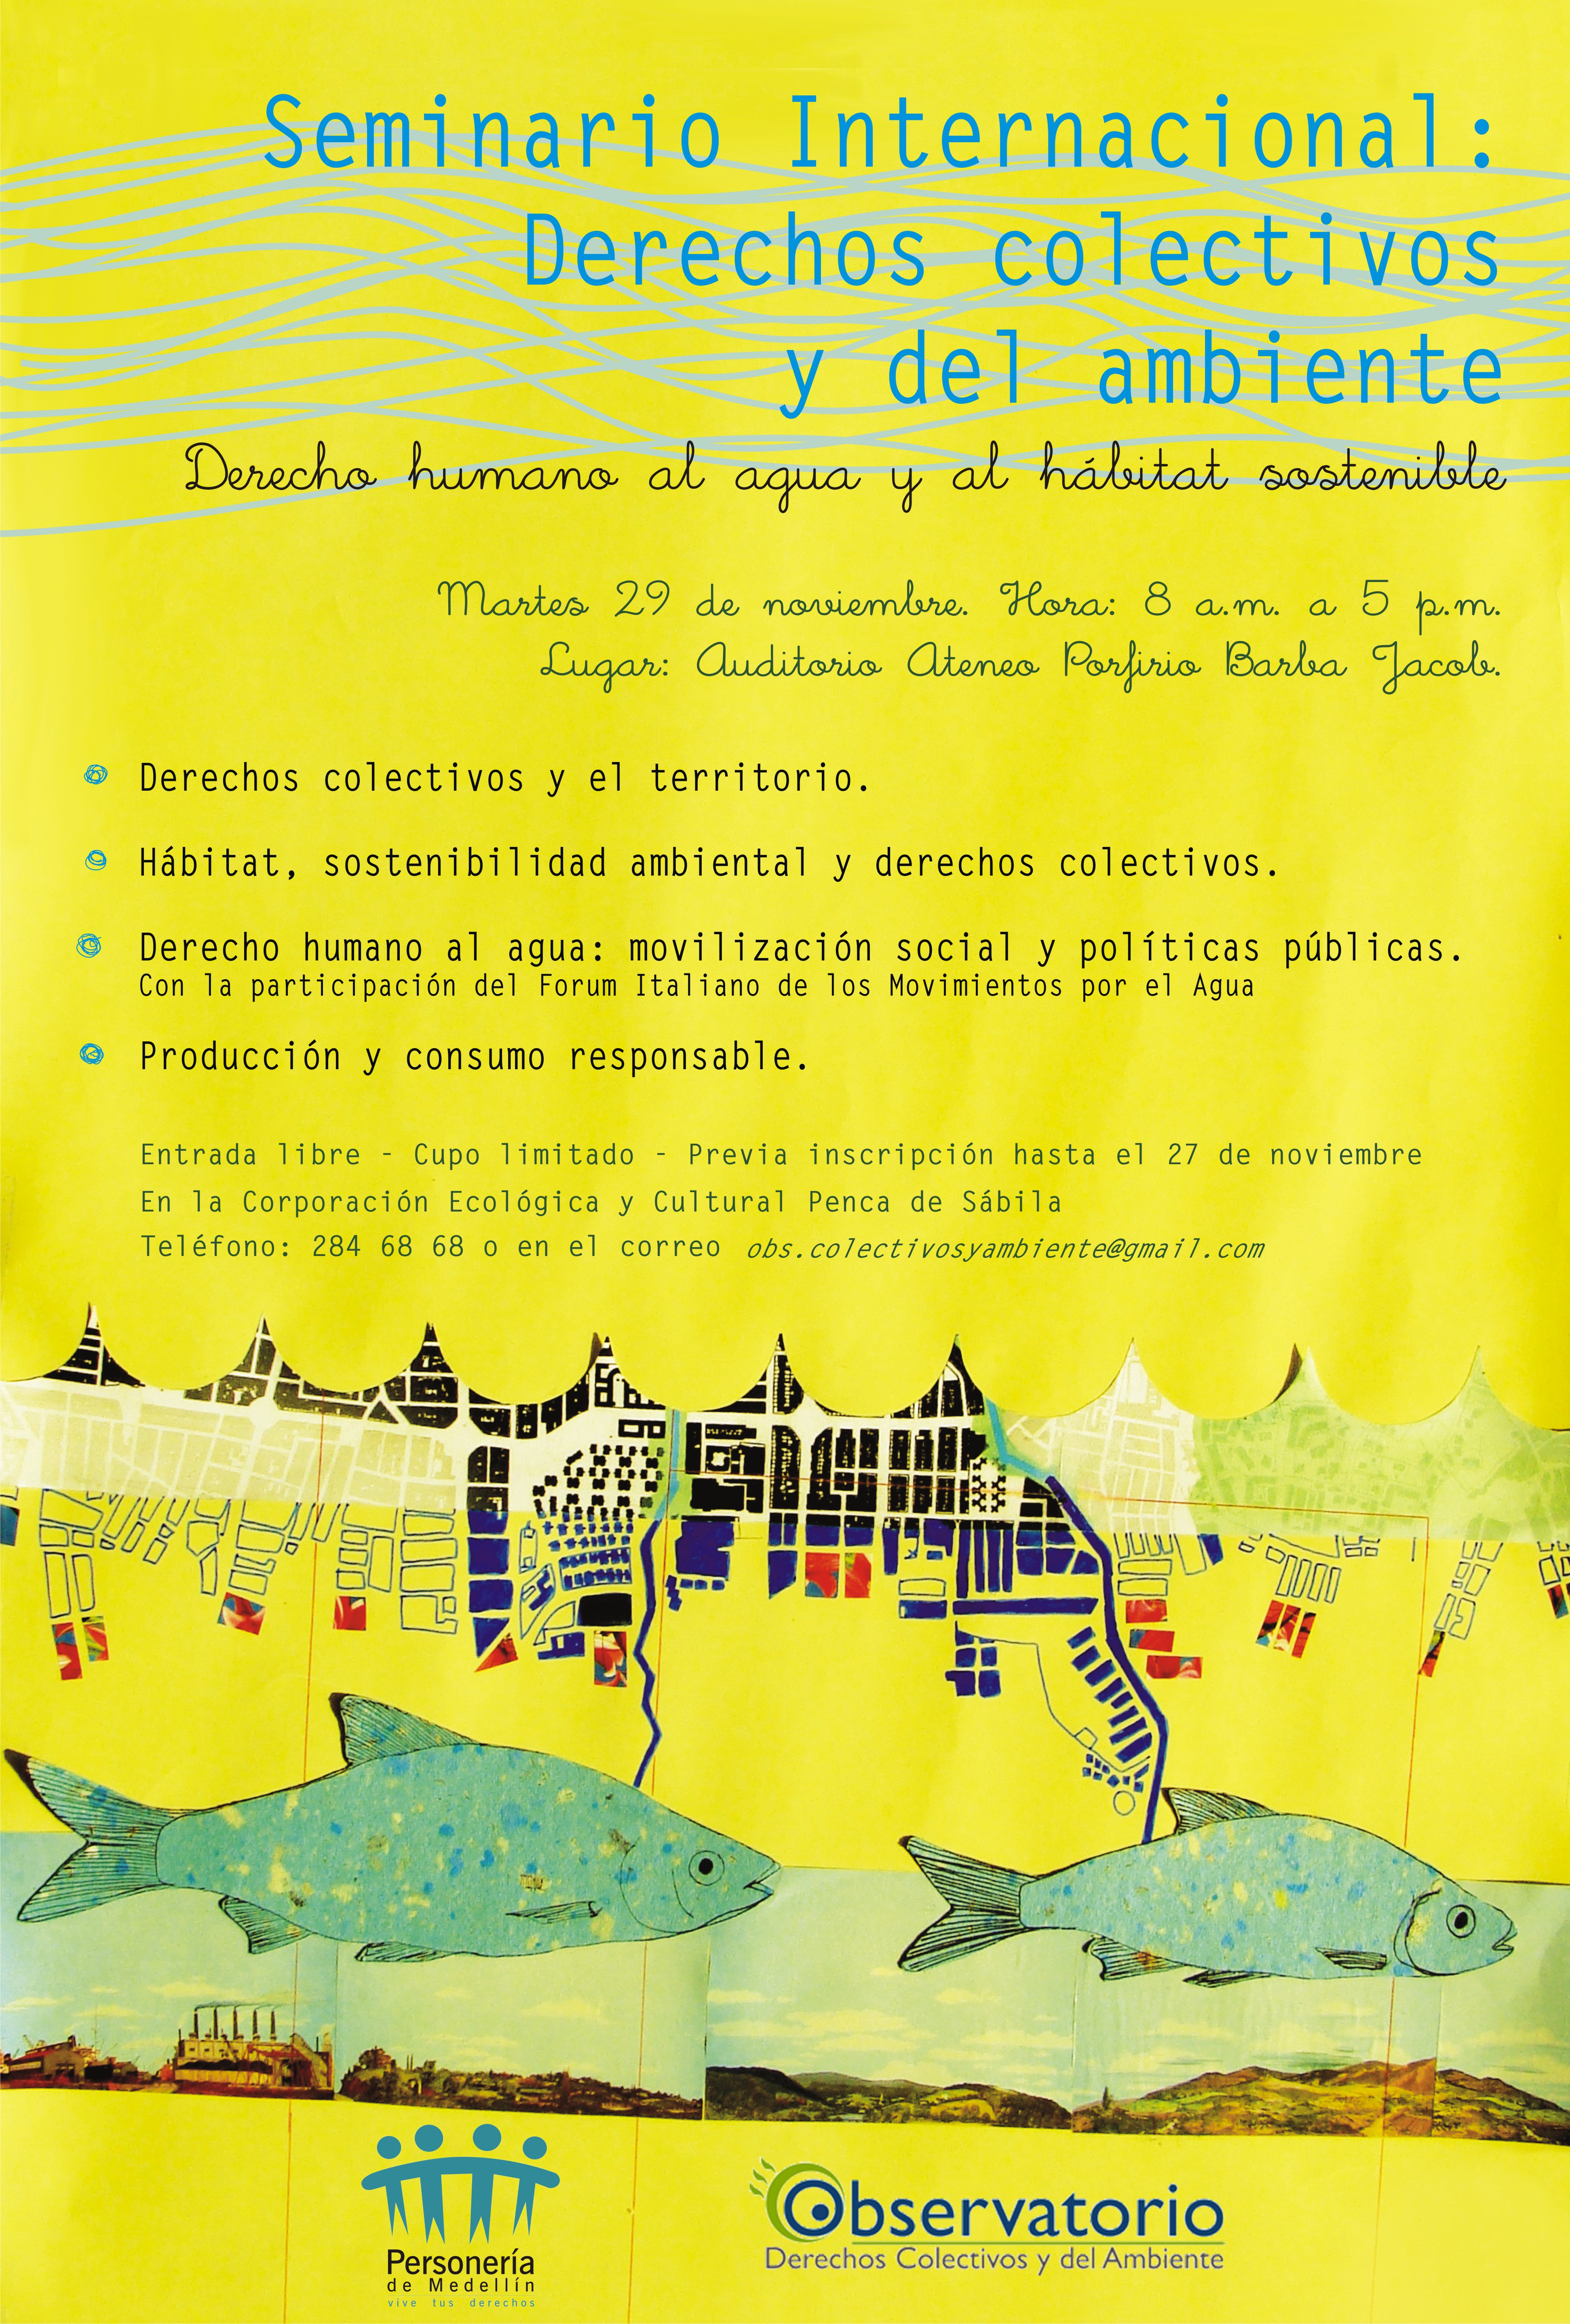 Seminario Internacional:
Derechos colectivos
y del ambiente
Derecho humano al agua y al hábitat sostenible
Martes 29 de noviembre. Hora: 8 a.m. a 5 p.m.
Lugar: Auditorio Ateneo Porfirio Barba Jacob.
Derechos colectivos y el territorio.
Hábitat, sostenibilidad ambiental y derechos colectivos.
Derecho humano al agua: movilización social y políticas públicas.
Con la participación del Forum Italiano de los Movimientos por el Agua
Producción y consumo responsable.
Entrada libre - Cupo limitado - Previa inscripción hasta el 27 de noviembre
En la Corporación Ecológica y Cultural Penca de Sábila
Teléfono: 284 68 68 o en el correo obs.colectivosyambiente@gmail.com
Personería
de Medellín
vive tus derechos
Observatorio
Derechos Colectivos y del Ambiente